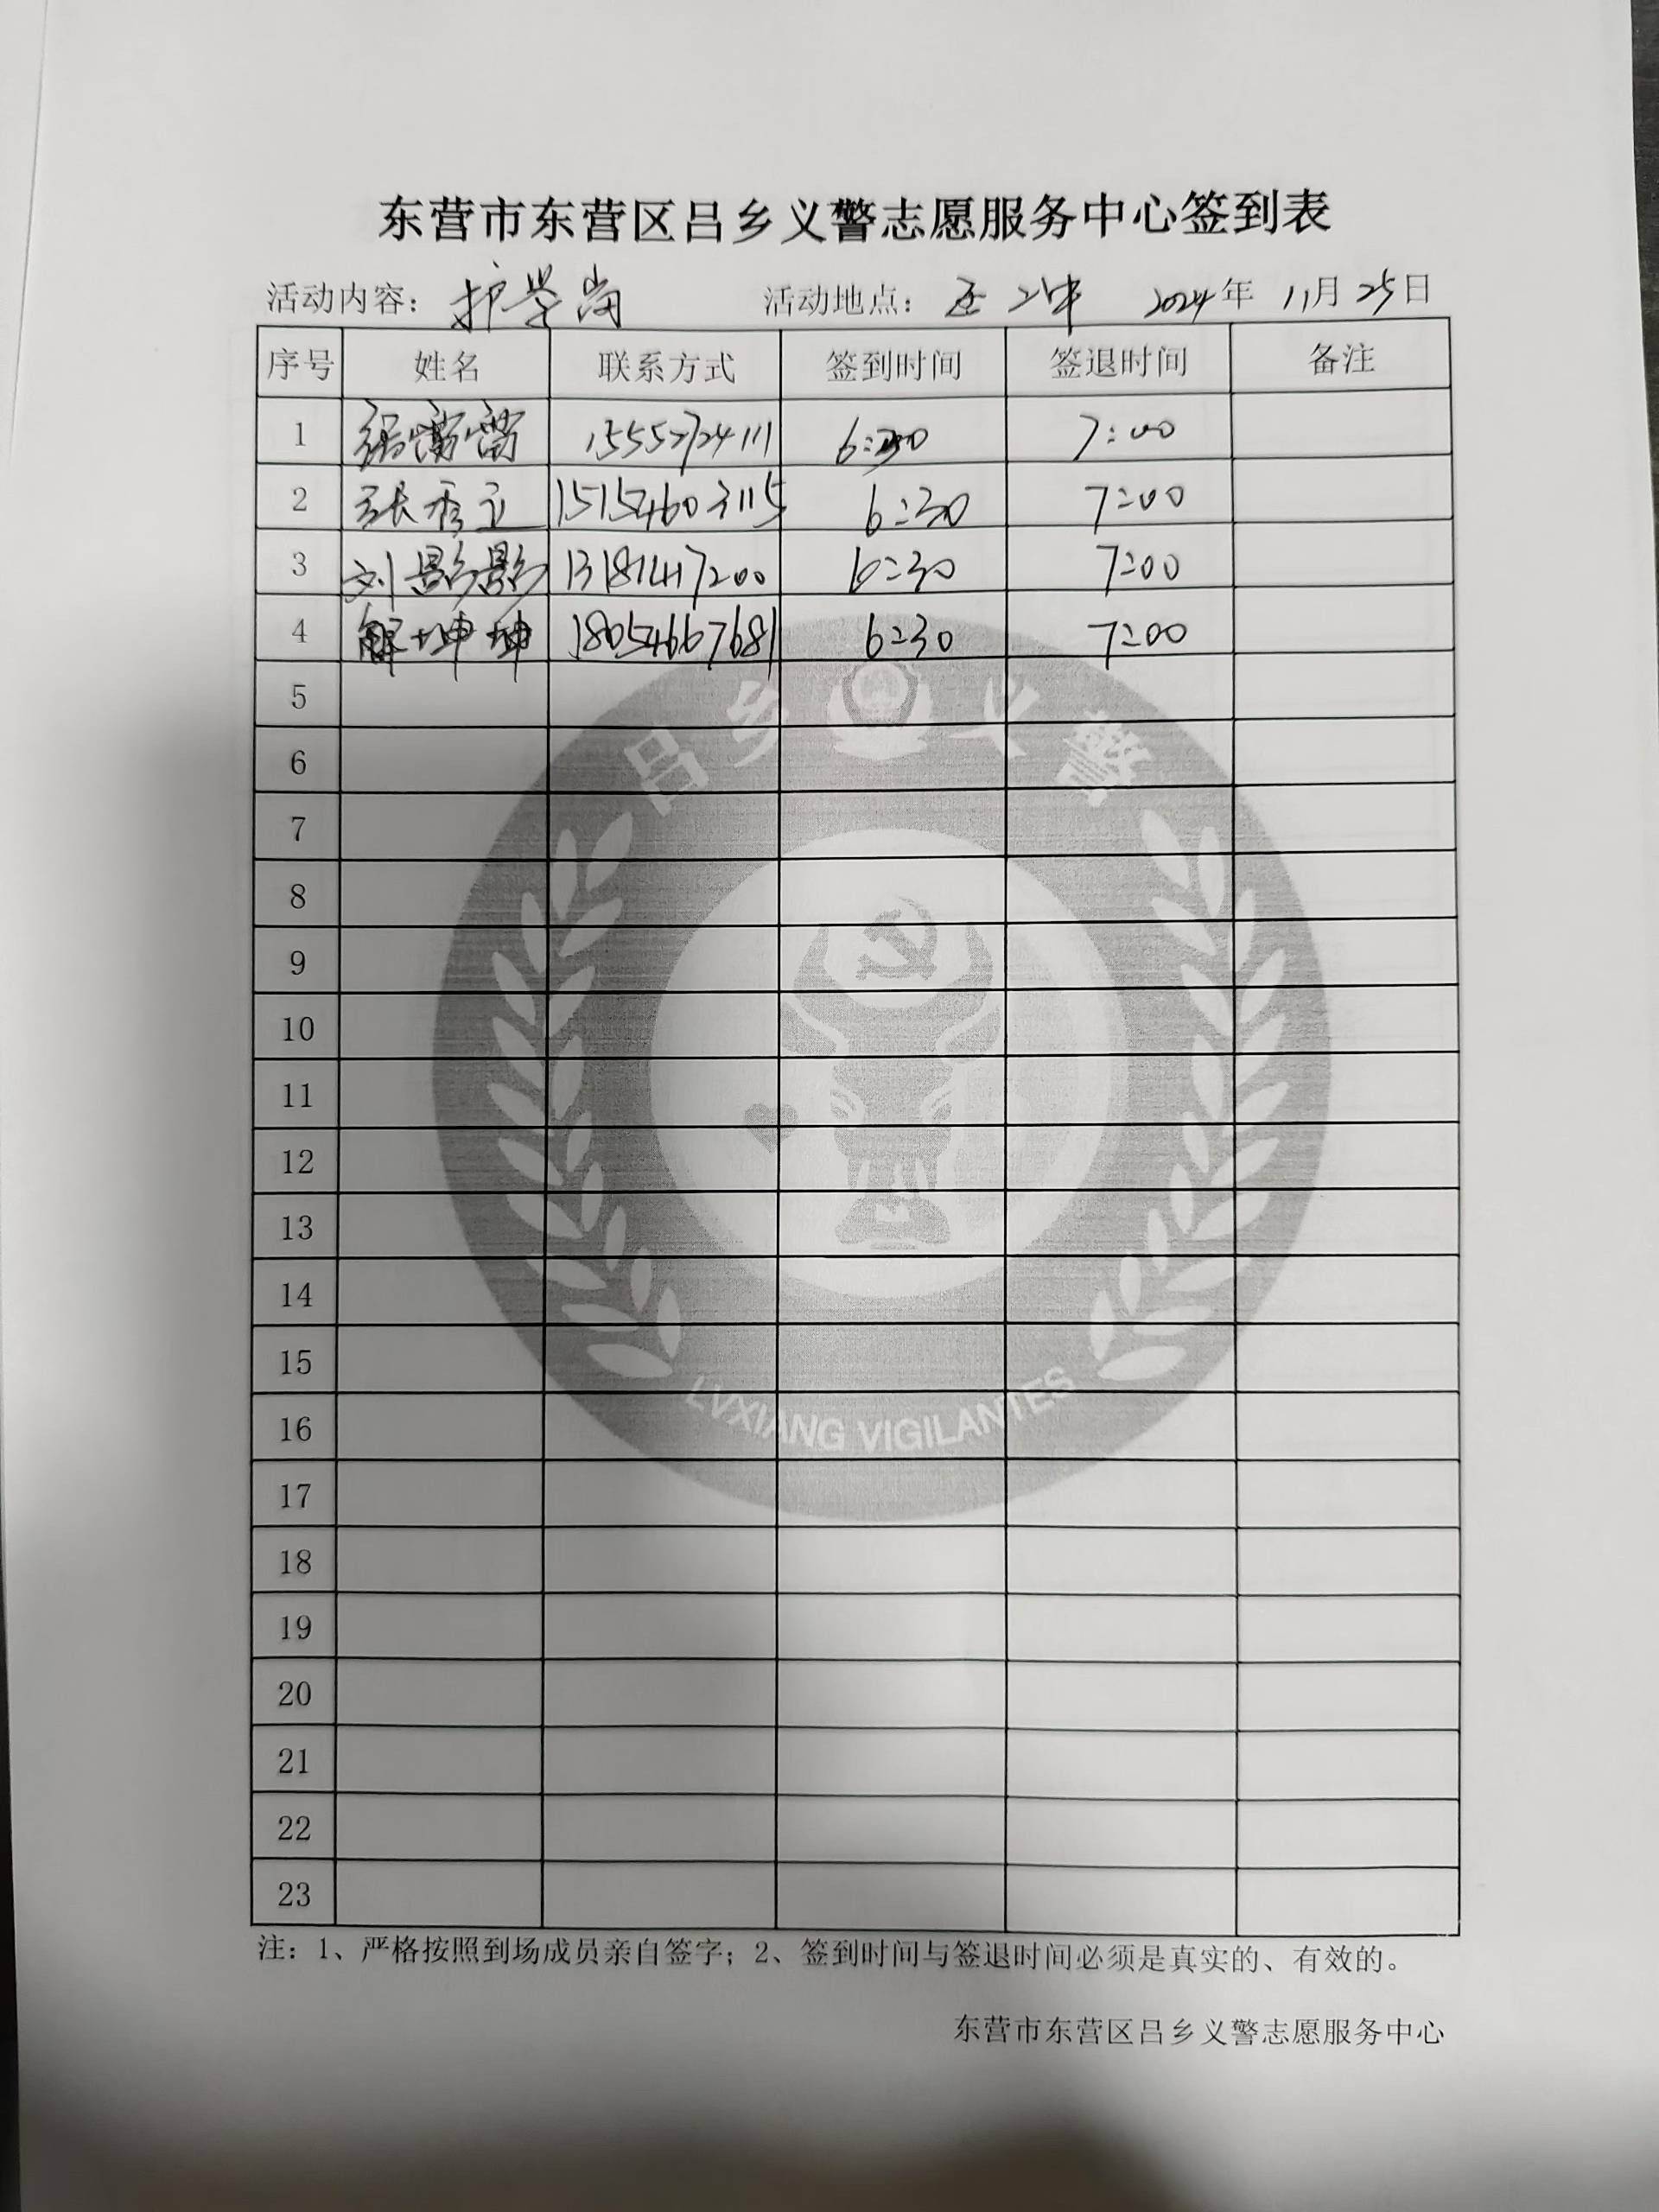 东营市东营区吕乡义警志愿服务中心签到表
活动内容：护学岗 活动地点： 二中 2024年 11月25日
序号 姓名 联系方式 签到时间 签退时间 备注
1 6:30 7:00
2 张秀立 15154603115 6:30 7:00
3 刘影影 1318147200 6:30 7:00
4 解坤坤 18054667681 6:30 7:00
5
6
7
8
9
10
11
12
13
14
15
16
17
18
19
20
21
22
23
吕乡义警
LVXIANG VIGILANTES
注：1、严格按照到场成员亲自签字；2、签到时间与签退时间必须是真实的、有效的。
东营市东营区吕乡义警志愿服务中心